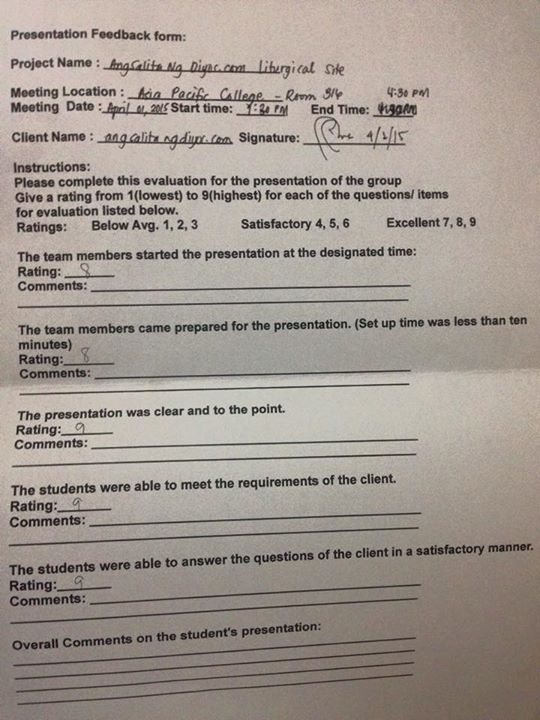 Presentation Feedback form:
Project Name : AngSalita Ng Diyos.com liturgical site
Meeting Location : Asia Pacific College - Room 316 4:30 PM
Meeting Date : April 01, 2015 Start time: 1:20 PM End Time:
Client Name : angsalitangdiyos.com Signature: 4/1/15
Instructions:
Please complete this evaluation for the presentation of the group
Give a rating from 1(lowest) to 9(highest) for each of the questions/ items
for evaluation listed below.
Ratings: Below Avg. 1, 2, 3 Satisfactory 4, 5, 6 Excellent 7, 8, 9
The team members started the presentation at the designated time:
Rating: 8
Comments:
The team members came prepared for the presentation. (Set up time was less than ten
minutes)
Rating: 8
Comments:
The presentation was clear and to the point.
Rating: 9
Comments:
The students were able to meet the requirements of the client.
Rating: 9
Comments:
The students were able to answer the questions of the client in a satisfactory manner.
Rating: 9
Comments:
Overall Comments on the student's presentation: